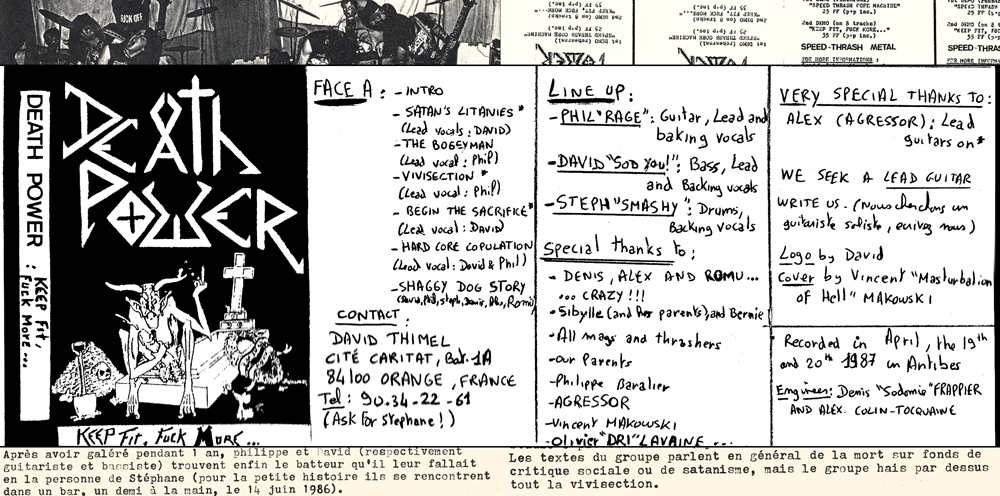 FUCK OFF
25 FF (p+p inc.)
"KEEP FIT, FUCK MORE..."
2nd DEMO (on 8 tracks)
35 FF (p+p inc.)
"SPEED THRASH COPE MACHINE"
1st DEMO (rehearsal)
"SPEED THRASH COPE MACHINE"
25 FF (p+p inc.)
2nd DEMO (on 8 tracks)
"KEEP FIT, FUCK MORE..."
35 FF (p+p inc.)
SPEED-THRASH METAL
FOR MORE INFORMATIONS :
DEATH POWER : KEEP FIT,
FUCK MORE...
DEATH
POWER
KEEP FIT, FUCK MORE...
FACE A : - INTRO
- SATAN'S LITANIES *
(Lead vocals : DAVID)
- THE BOGEYMAN
(Lead vocal : Phil)
- VIVISECTION *
(Lead vocal : Phil)
- BEGIN THE SACRIFICE *
(Lead vocal : DAVID)
- HARD CORE COPULATION
(Lead vocal : David & Phil)
- SHAGGY DOG STORY
CONTACT :
DAVID THIMEL
CITÉ CARITAT, Bat. 1A
84100 ORANGE, FRANCE
Tel : 90.34-22-61
(Ask for Stephane !)
LINE UP :
- PHIL "RAGE" : Guitar, Lead and
baking vocals
- DAVID "SOD YOU!" : Bass, Lead
and Backing vocals
- STEPH "SMASHY" : Drums,
Backing vocals
Special thanks to :
- DENIS, ALEX AND ROMU...
... CRAZY !!!
- Sibylle (and her parents) and Bernie
- All mags and thrashers
- Our Parents
- Philippe Baralier
- AGRESSOR
- Vincent MAKOWSKI
- Olivier "DRI" LAVAINE ...
VERY SPECIAL THANKS TO :
ALEX (AGRESSOR) : Lead
guitars on *
WE SEEK A LEAD GUITAR
WRITE US. (Nous cherchons un
guitariste soliste, ecrivez nous)
Logo by David
Cover by Vincent "Masturbation
of Hell" MAKOWSKI
Recorded in April, the 19th
and 20th 1987 in Antibes
Engineer : Denis "Sodomie" FRAPPIER
AND ALEX. COLIN-TOCQUAINE
Après avoir galéré pendant 1 an, philippe et David (respectivement
guitariste et bassiste) trouvent enfin le batteur qu'il leur fallait
en la personne de Stéphane (pour la petite histoire ils se rencontrent
dans un bar, un demi à la main, le 14 juin 1986).
Les textes du groupe parlent en général de la mort sur fonds de
critique sociale ou de satanisme, mais le groupe hais par dessus
tout la vivisection.